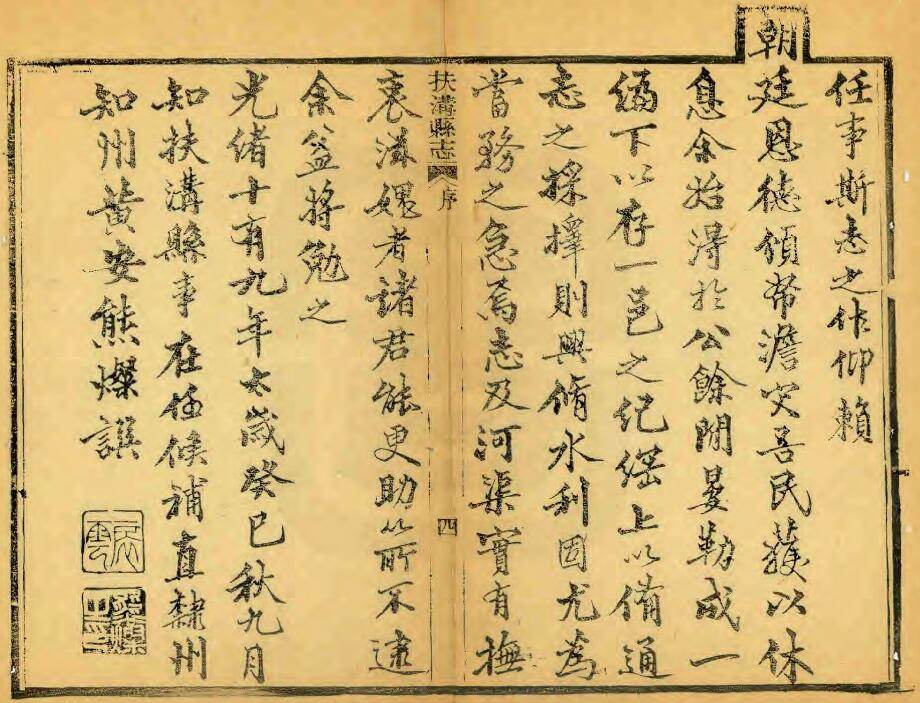 任事斯志之作仰賴
朝廷恩德傾帑澹灾吾民獲以休
息余始得於公餘閒晏勒成一
編下以存一邑之紀緐上以備通
志之採擇則興脩水利固尤為
當務之急焉志及河渠實有撫
扶溝縣志
序
四
衷滋媿者諸君能更助以所不逮
余益將勉之
光緒十有九年太歲癸巳秋九月
知扶溝縣事在任候補直隸州
知州黃安熊燦譔